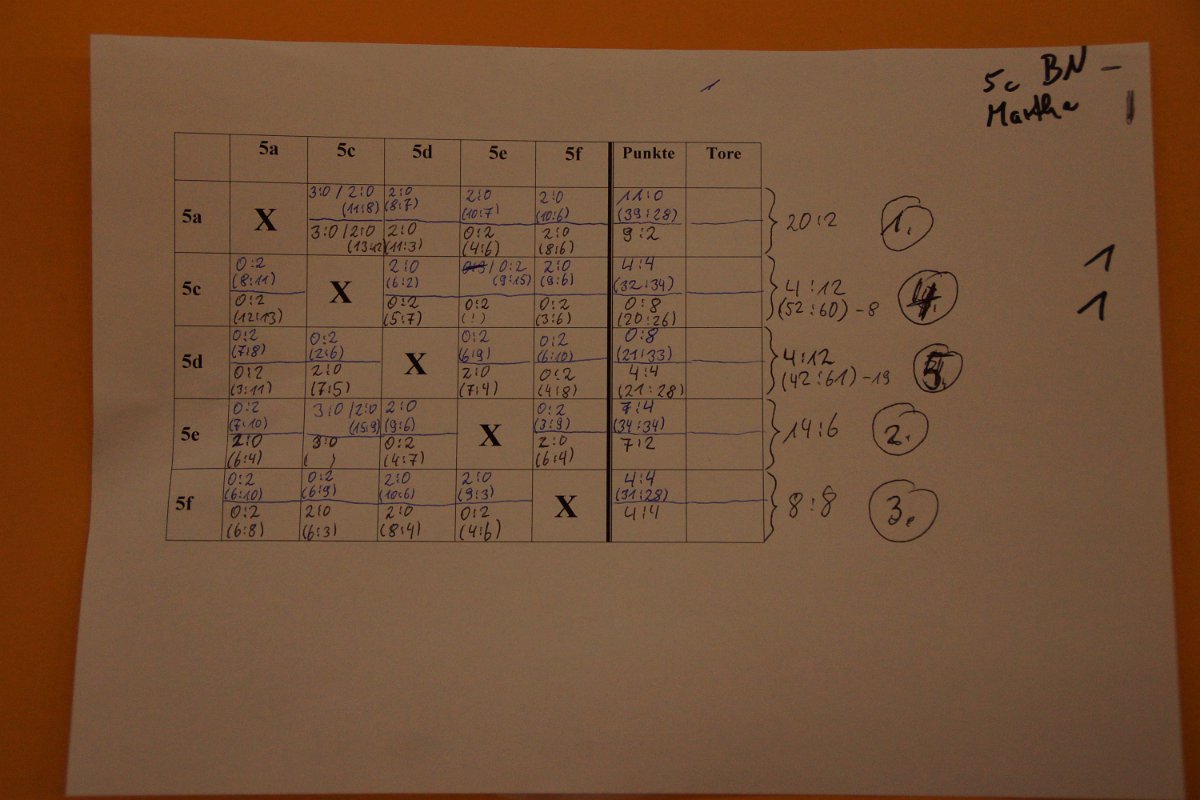 5c BN -
Martha
5a 5c 5d 5e 5f Punkte Tore
5a X 3:0 / 2:0 2:0 2:0 2:0 11:0
(11:8) (8:7) (10:7) (10:6) (39:28)
3:0 / 2:0 2:0 0:2 2:0 9:2 20:2 1.
(13:12) (11:3) (4:6) (8:6)
5c 0:2 X 2:0 / 0:2 2:0 4:4
(8:11) (6:2) (9:15) (9:6) (32:34)
0:2 0:2 0:2 0:2 0:8 4:12 4.
(12:13) (5:7) (:) (3:6) (20:26) (52:60) -8
5d 0:2 0:2 X 0:2 0:2 0:8
(7:8) (2:6) (6:9) (6:10) (21:33)
0:2 2:0 2:0 0:2 4:4 4:12 5.
(3:11) (7:5) (7:4) (4:8) (21:28) (42:61) -19
5e 0:2 3:0 / 2:0 2:0 X 0:2 7:4
(7:10) (15:9) (9:6) (3:9) (34:34)
2:0 3:0 0:2 2:0 7:2 14:6 2.
(6:4) ( ) (4:7) (6:4)
5f 0:2 0:2 2:0 2:0 X 4:4
(6:10) (6:9) (10:6) (9:3) (31:28)
0:2 2:0 2:0 0:2 4:4 8:8 3.
(6:8) (6:3) (8:4) (4:6)
1
1